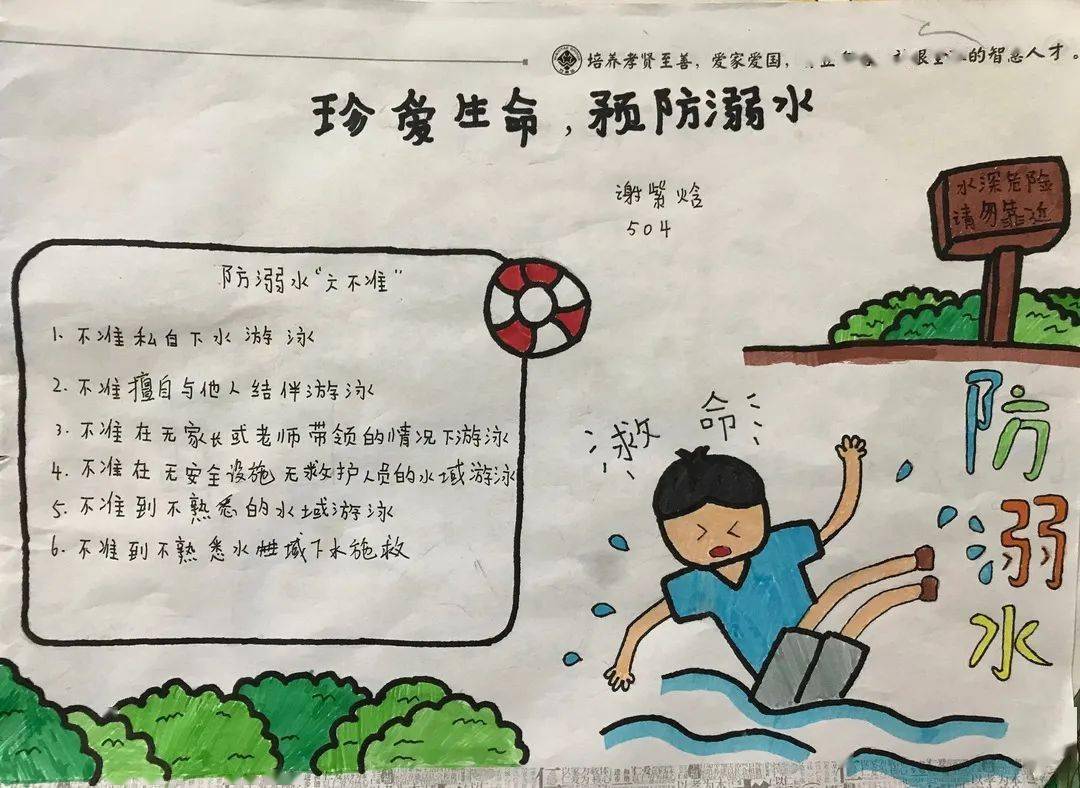 培养孝贤至善，爱家爱国，
的智慧人才。
珍爱生命，预防溺水
谢紫焓
504
水深危险
请勿靠近
防溺水“六不准”
1. 不准私自下水游泳
2. 不准擅自与他人结伴游泳
3. 不准在无家长或老师带领的情况下游泳
4. 不准在无安全设施无救护人员的水域游泳
5. 不准到不熟悉的水域游泳
6. 不准到不熟悉水域下水施救
救命
防溺水